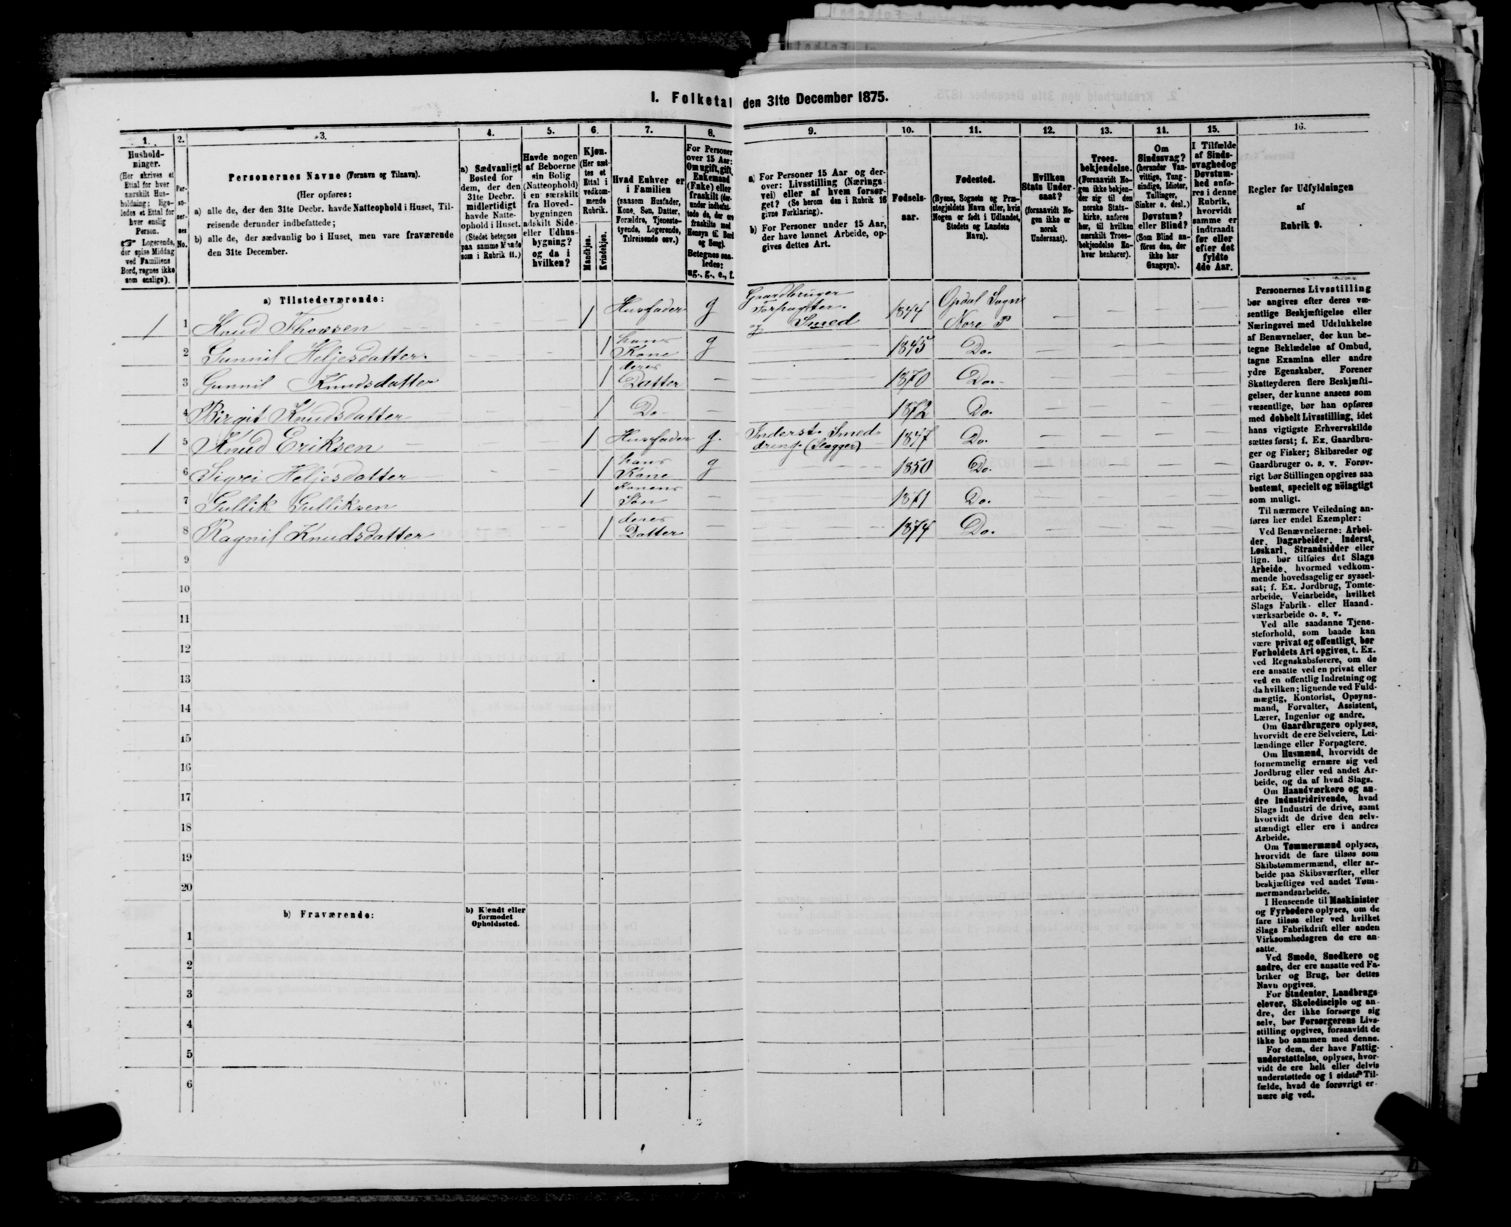 I. Folketal den 31te December 1875.
1.
Husholdninger.
(Her skrives et Ettal for hver særskilt Husholdning; ligeledes et Ettal for hver enslig Person.
Logerende, der spise Middag ved Familiens Bord, regnes ikke som enslige).
2.
Personernes No.
3.
Personernes Navne (Fornavn og Tilnavn).
(Her opføres:
a) alle de, der den 31te Decbr. havde Natteophold i Huset, Tilreisende derunder indbefattede;
b) alle de, der sædvanlig bo i Huset, men vare fraværende den 31te December.
4.
a) Sædvanligt Bosted for dem, der den 31te Decbr. midlertidigt havde Natteophold i Huset.
(Stedet betegnes paa samme Maade som i Rubrik 11.)
5.
Havde nogen af Beboerne sin Bolig (Natteophold) i en særskilt fra Hovedbygningen adskilt Side- eller Udhusbygning? og da i hvilken?
6.
Kjøn.
(Her sættes et Ettal i vedkommende Rubrik.
Mandkjøn.
Kvindekjøn.
7.
Hvad Enhver er i Familien
(saasom Husfader, Kone, Søn, Datter, Forældre, Tjenestetyende, Logerende, Tilreisende osv.)
8.
For Personer over 15 Aar: Om ugift, gift, Enkemand (Enke) eller fraskilt
Betegnes saaledes: ug., g., e., f.
9.
a) For Personer 15 Aar og derover: Livsstilling (Næringsvei) eller af hvem forsørget? (Se herom den i Rubrik 16 givne Forklaring).
b) For Personer under 15 Aar, der have lønnet Arbeide, opgives dettes Art.
10.
Fødselsaar.
11.
Fødested.
(Byens, Sognets og Præstegjeldets Navn eller, hvis Nogen er født i Udlandet, Stedets og Landets Navn).
12.
Hvilken Stats Undersaat?
(forsaavidt Nogen ikke er norsk Undersaat).
13.
Troesbekjendelse.
(Forsaavidt Nogen ikke bekjender sig til den norske Statskirke, anføres her, til hvilken særskilt Troesbekjendelse Enhver henhører).
14.
Om Sindssvag?
(herunder Vanvittige, Tungsindige, Idioter, Tullinger, Sinker o. desl.)
Døvstum? eller Blind?
(Som Blind anføres den, der ikke har Gangsyn).
15.
I Tilfælde af Sindssvaghed og Døvstumhed anføres i denne Rubrik, hvorvidt samme er indtraadt før eller efter det fyldte 4de Aar.
16.
Regler for Udfyldningen
af
Rubrik 9.
a) Tilstedeværende:
1 1 Knud Thoresen 1 Husfader g Gaardbruger Forpagter og Smed 1844 Opdal Sogn Nore P
2 Gunnil Heljesdatter 1 hans Kone g 1845 Do.
3 Gunnil Knudsdatter 1 deres Datter 1870 Do.
4 Birgit Knudsdatter 1 Do 1872 Do.
1 5 Knud Eriksen 1 Husfader g. Inderst. Smeddreng (Slagger) 1847 Do.
6 Sigrei Heljesdatter 1 hans Kone g 1850 Do.
7 Gullik Gulliksen 1 Konens Søn 1871 Do.
8 Ragnil Knudsdatter 1 deres Datter 1874 Do.
9
10
11
12
13
14
15
16
17
18
19
20
b) Fraværende:
b) Kjendt eller formodet Opholdssted.
1
2
3
4
5
6
Personernes Livsstilling
bør angives efter deres væ-
sentlige Beskjæftigelse eller
Næringsvei med Udelukkelse
af Benævnelser, der kun be-
tegne Beklædelse af Ombud,
tagne Examina eller andre
ydre Egenskaber. Forener
Skatteyderen flere Beskjæfti-
gelser, der kunne ansees som
væsentlige, bør han opføres
med dobbelt Livsstilling, idet
hans vigtigste Erhvervskilde
sættes først; f. Ex. Gaardbru-
ger og Fisker; Skibsreder og
Gaardbruger o. s. v. Forøv-
rigt bør Stillingen opgives saa
bestemt, specielt og nöiagtigt
som muligt.
Til nærmere Veiledning an-
føres her endel Exempler:
Ved Benævnelserne: Arbei-
der, Dagarbeider, Inderst,
Løskarl, Strandsidder eller
lign. bør tilføies det Slags
Arbeide, hvormed vedkom-
mende hovedsagelig er syssel-
sat; f. Ex. Jordbrug, Tomte-
arbeide, Veiarbeide, hvilket
Slags Fabrik- eller Haand-
værksarbeide o. s. v.
Ved alle saadanne Tjene-
steforhold, som baade kan
være privat og offentligt, bør
Forholdets Art opgives, t. Ex.
ved Regnskabsførere, om de
ere ansatte ved en privat eller
ved en offentlig Indretning og
da hvilken; lignende ved Fuld-
mægtig, Kontorist, Opsyns-
mand, Forvalter, Assistent,
Lærer, Ingeniør og andre.
Om Gaardbrugere oplyses,
hvorvidt de ere Selveiere, Lei-
lændinge eller Forpagtere.
Om Husmænd, hvorvidt de
fornemmelig ernære sig ved
Jordbrug eller ved andet Ar-
beide, og da af hvad Slags.
Om Haandværkere og an-
dre Industridrivende, hvad
Slags Industri de drive, samt
hvorvidt de drive den selv-
stændigt eller ere i andres
Arbeide.
Om Tømmermænd oplyses,
hvorvidt de fare tilsøs som
Skibstømmermænd, eller ar-
beide paa Skibsværfter, eller
beskjæftiges ved andet Tøm-
mermandsarbeide.
I Henseende til Maskinister
og Fyrbødere oplyses, om de
fare tilsøs eller ved hvilket
Slags Fabrikdrift eller anden
Virksomhedsgren de ere an-
satte.
Ved Smede, Snedkere og
andre, der ere ansatte ved Fa-
briker og Brug, bør dettes
Navn opgives.
For Studenter, Landbrugs
elever, Skoledisciple og an-
dre, der ikke forsørge sig
selv, bør Forsørgerens Livs-
stilling opgives, forsaavidt de
ikke bo sammen med denne.
For dem, der have Fattig-
understøttelse, oplyses, hvor-
vidt de ere helt eller delvis
understøttede og i sidste Til-
fælde, hvad de forøvrigt er-
nære sig ved.